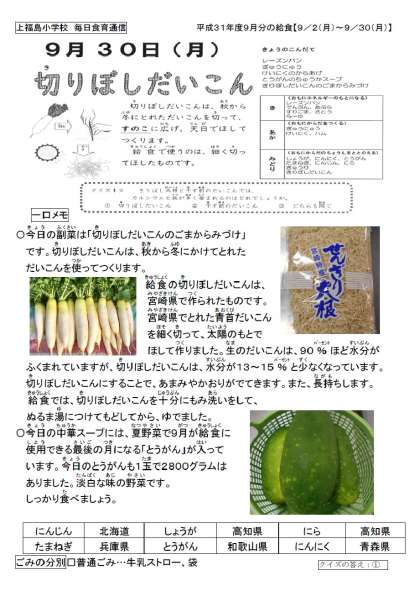 上福島小学校 毎日食育通信
平成31年度9月分の給食【9／2（月）～9／30（月）】
9月30日（月）
切りぼしだいこん
切りぼしだいこんは、秋から
冬にとれただいこんを切って、
すのこに広げ、天日でほして
つくります。
給食で使うのは、細く切っ
てほしたものです。
きょうのこんだて
レーズンパン
ぎゅうにゅう
けいにくのからあげ
とうがんのちゅうかスープ
きりぼしだいこんのごまからみづけ
き
あか
みどり
レーズンパン
ぎゅうにゅう
一口メモ
○今日の副菜は「切りぼしだいこんのごまからみづけ」
です。切りぼしだいこんは、秋から冬にかけてとれた
だいこんを使ってつくります。
給食の切りぼしだいこんは、
宮崎県で作られたものです。
宮崎県でとれた青首だいこん
を細く切って、太陽のもとで
ほして作りました。生のだいこんは、90％ほど水分が
ふくまれていますが、切りぼしだいこんは、水分が13～15％と少なくなっています。
切りぼしだいこんにすることで、あまみやかおりがでてきます。また、長持ちします。
給食では、切りぼしだいこんを十分にもみ洗いをして、
ぬるま湯につけてもどしてから、ゆでました。
○今日の中華スープには、夏野菜で9月が給食に
使用できる最後の月になる「とうがん」が入って
います。今日のとうがんも1玉で2800グラムは
ありました。淡白な味の野菜です。
しっかり食べましょう。
せんぎり大根
にんじん 北海道 しょうが 高知県 にら 高知県
たまねぎ 兵庫県 とうがん 和歌山県 にんにく 青森県
ごみの分別□普通ごみ…牛乳ストロー、袋
クイズの答え：①